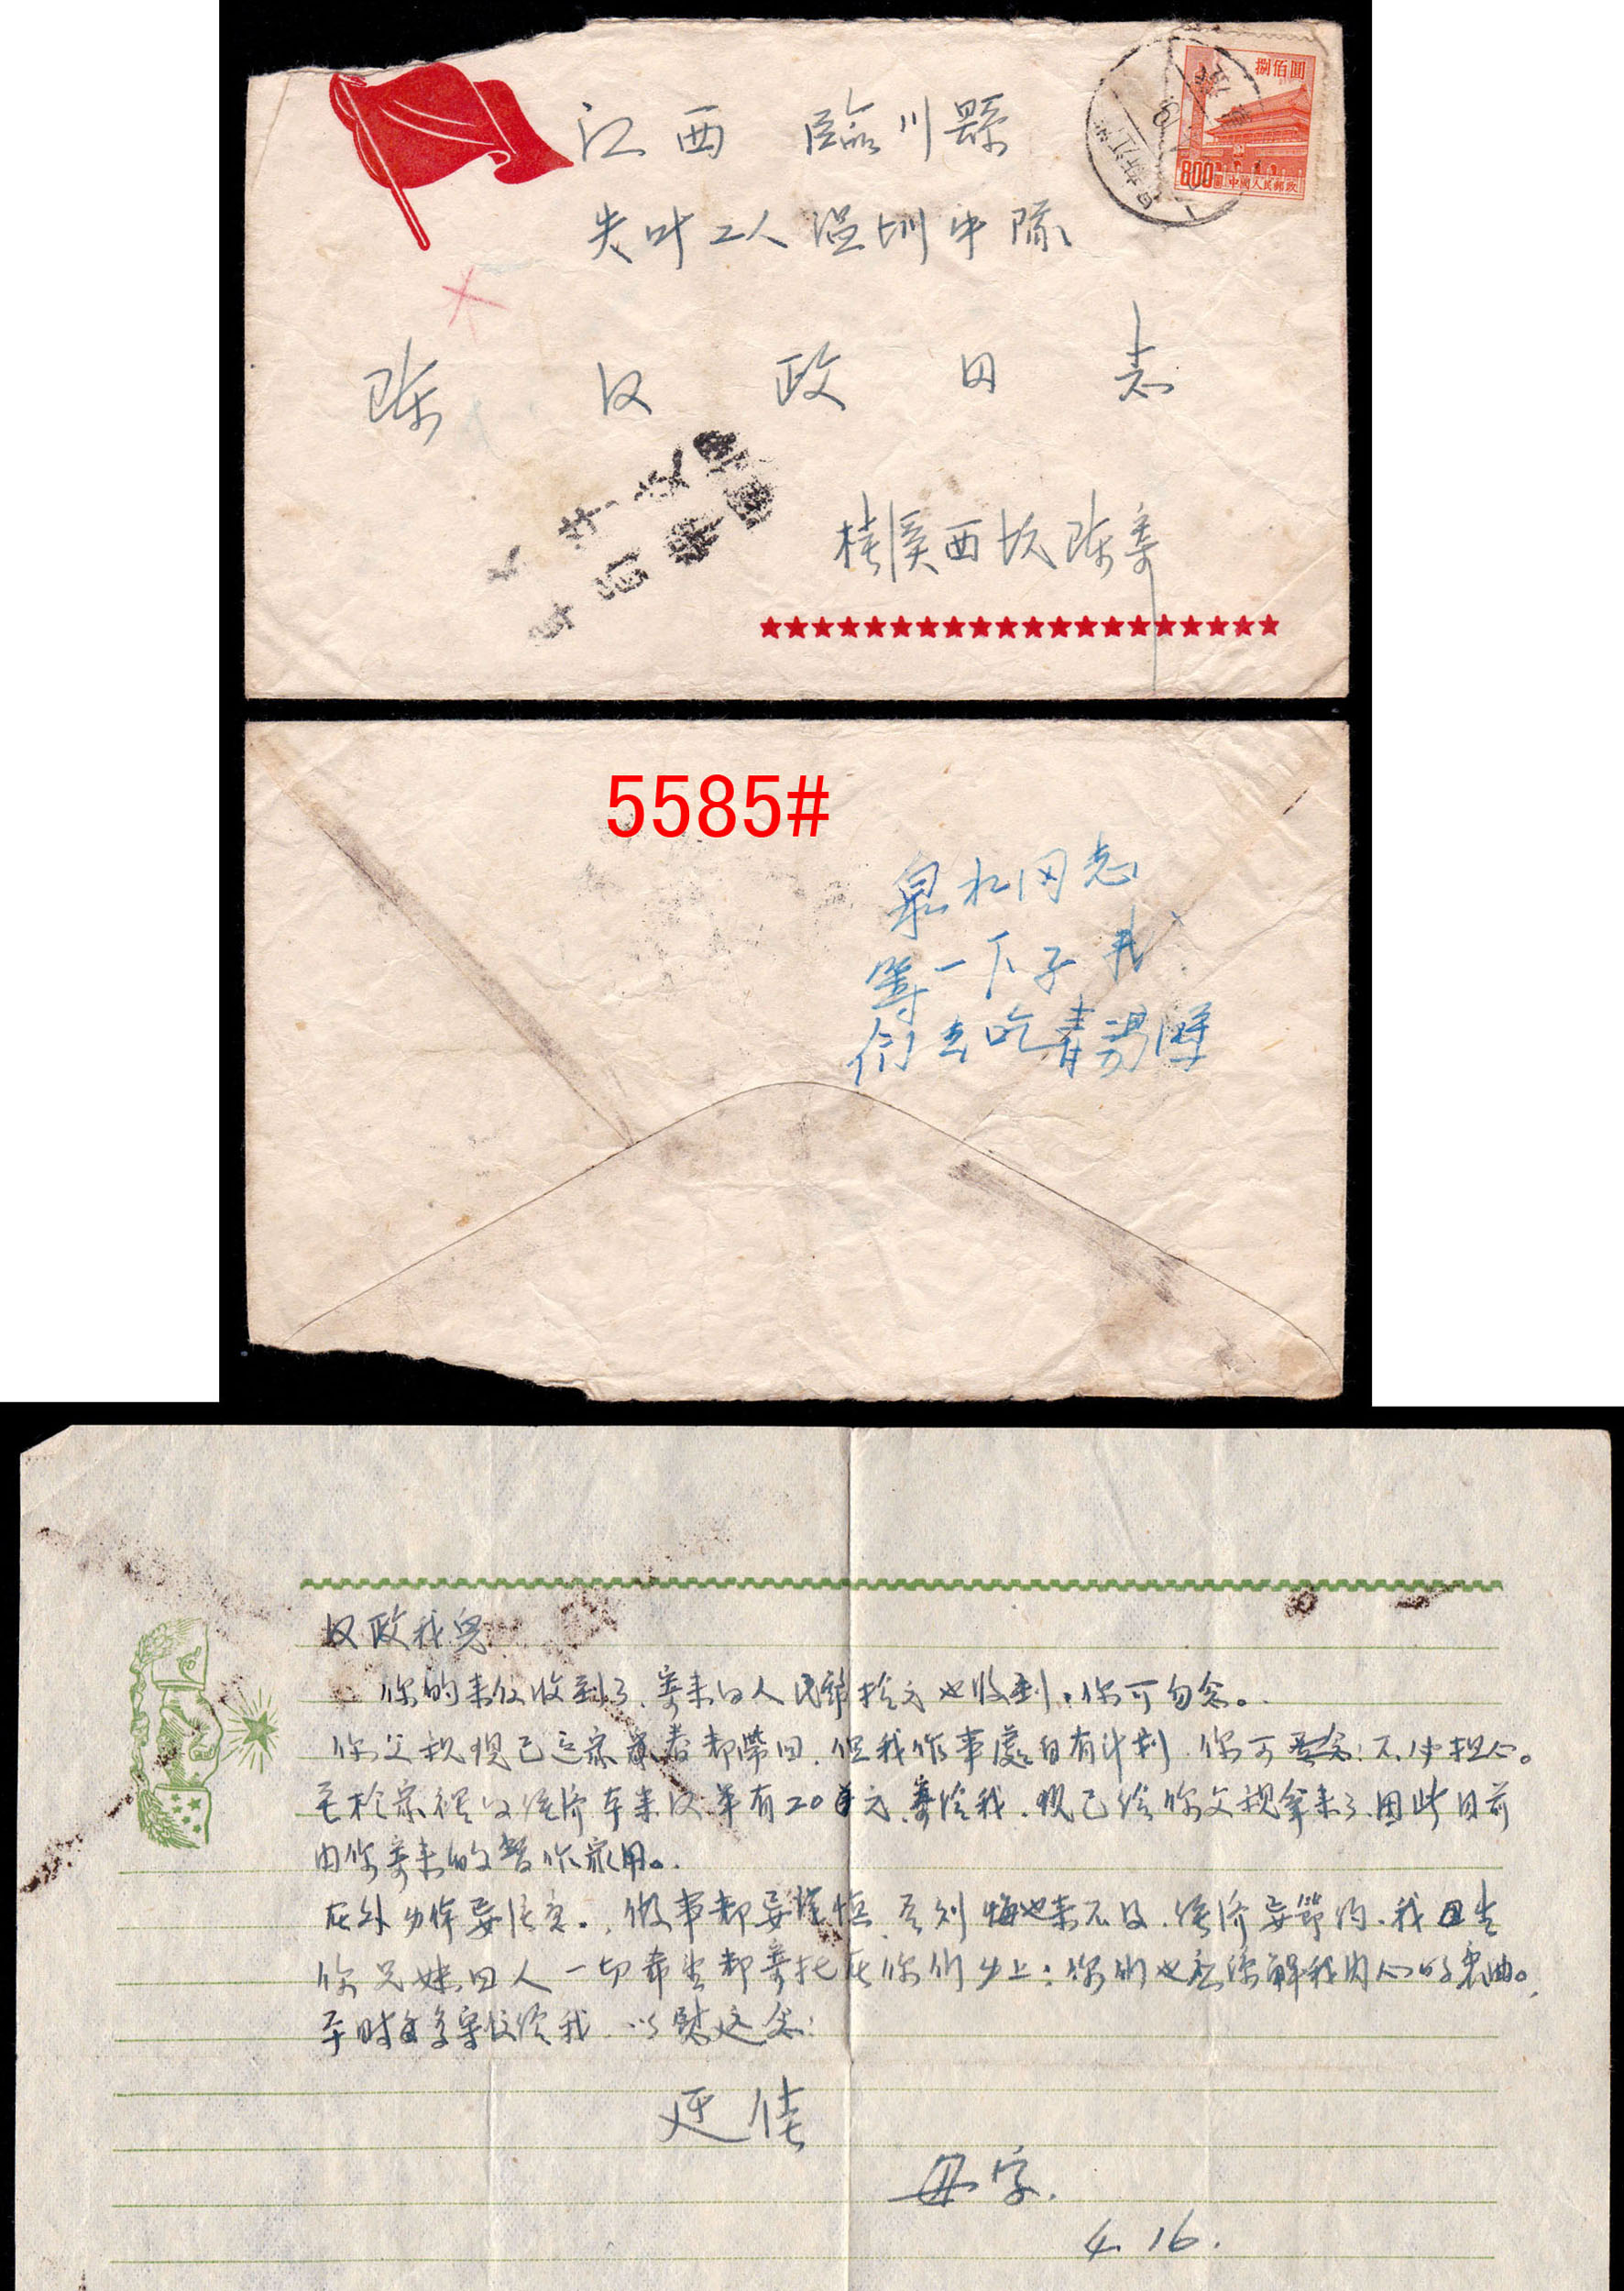 捌佰圓
800圓 中國人民郵政
江西 臨川縣
失叶工人温圳中隊
陈汉政同志
桂溪西坑陈寄
5585#
泉松同志
等一下子我
们去吃青湯
汉政我儿
你的来信收到了、寄来的人民幣拾元也收到,你可勿念。
你父親現已 家 都帶回,但我作事處自有计划 你可 不必担心。
至於家裡的经济本来汉华有20 元寄给我,現已给你父親拿来了,因此目前
由你寄来的暂作家用。
在外 作要 实。,做事都要谨慎 否则悔也来不及,经济要節约,我
你兄妹四人一切希望都寄托在你们身上:你们也应 解我内心的衷曲。
平时 多写信给我 以慰 念:
近佳
母字.
4.16.